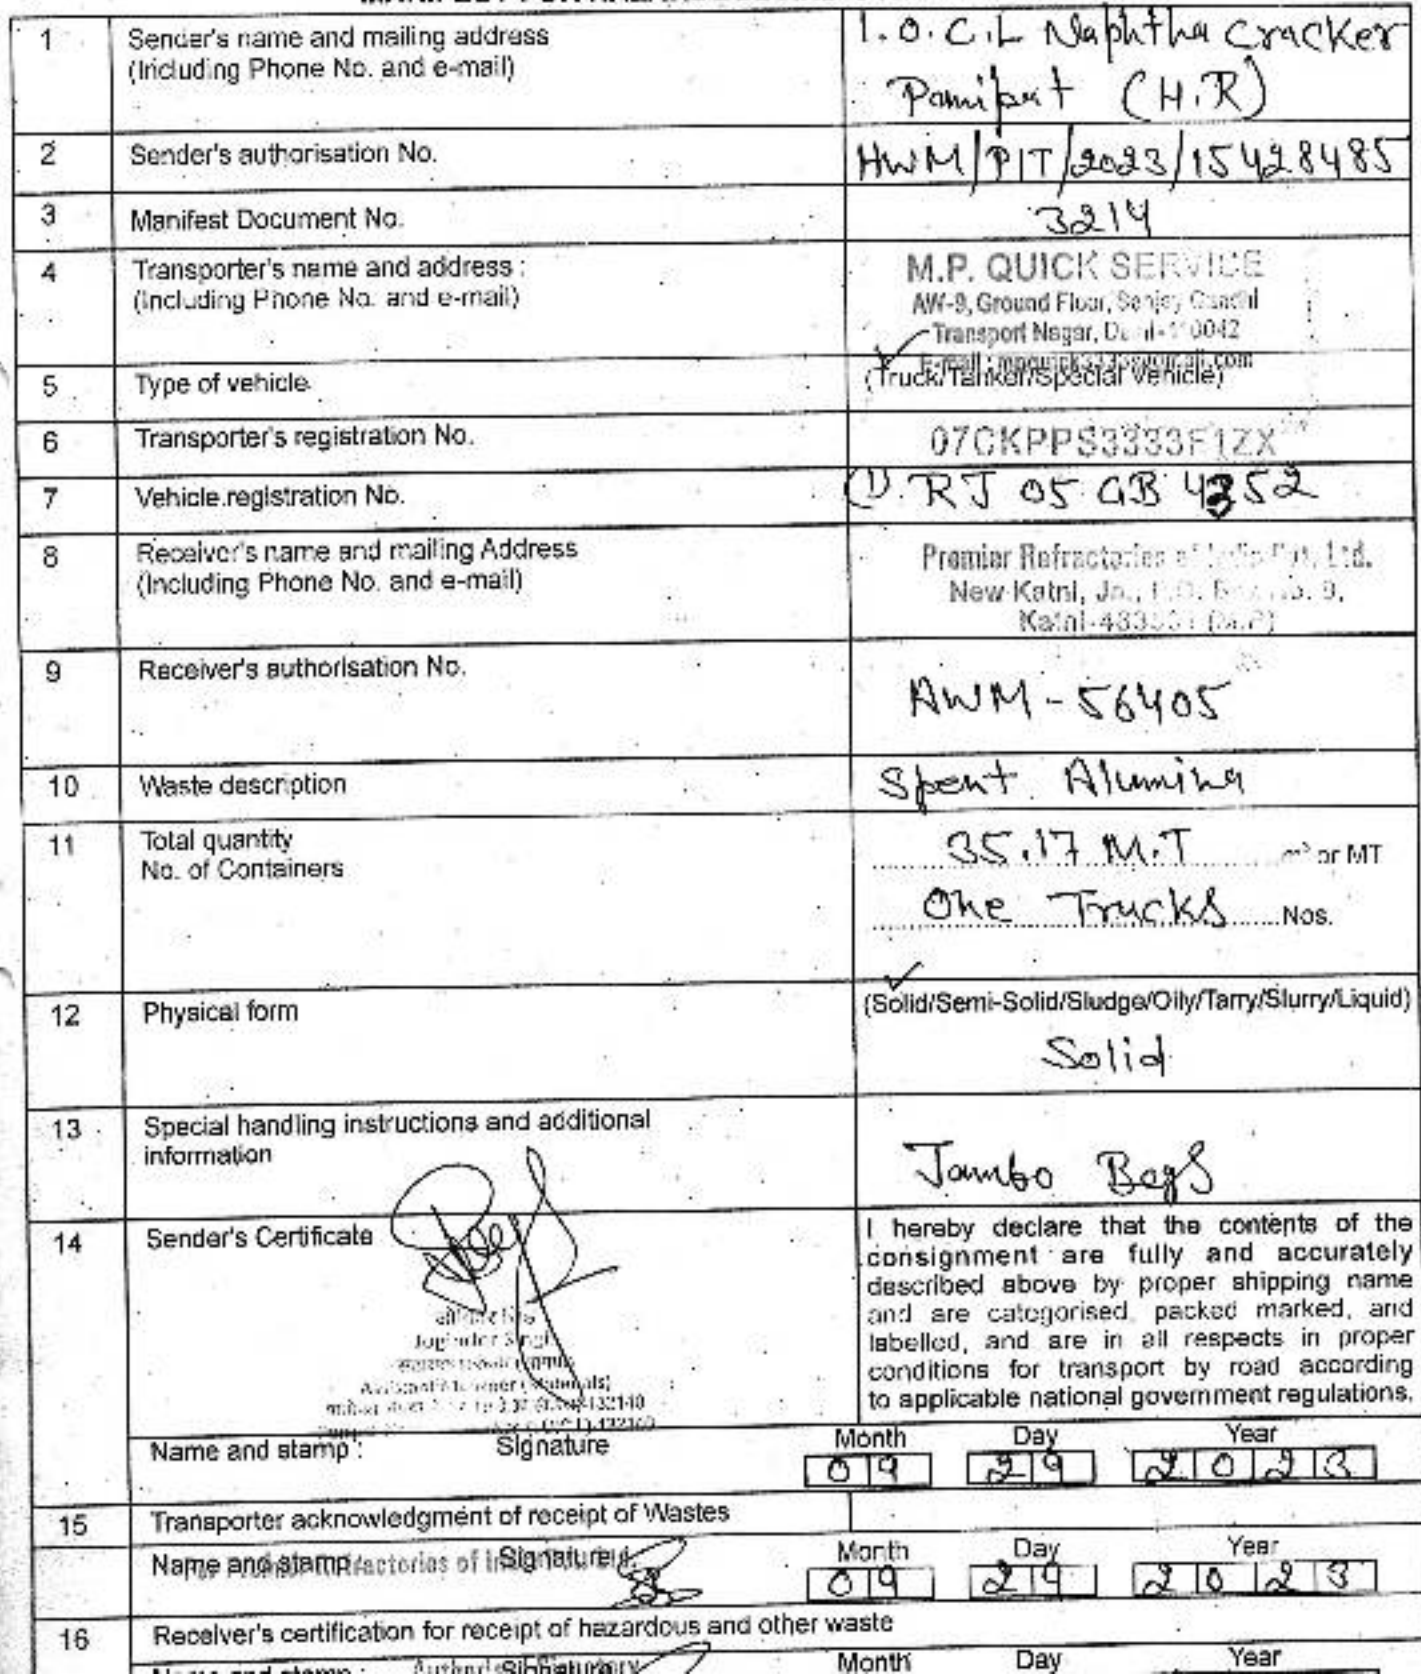 1 Sender's name and mailing address I.O.C.L Naphtha Cracker
(Including Phone No. and e-mail) Panipat (H.R)
2 Sender's authorisation No. HWM/PIT/2023/15428485
3 Manifest Document No. 3214
4 Transporter's name and address : M.P. QUICK SERVICE
(Including Phone No. and e-mail) AW-9, Ground Floor, Sanjay Gandhi
Transport Nagar, Delhi-110042
E-mail :
5 Type of vehicle (Truck/Tanker/Special Vehicle)
6 Transporter's registration No. 07CKPPS3333F1ZX
7 Vehicle registration No. (1). RJ 05 GB 4352
8 Receiver's name and mailing Address Premier Refractories of India Pvt. Ltd.
(Including Phone No. and e-mail) New Katni, Jn., P.O. Box No. 9,
Katni- (M.P)
9 Receiver's authorisation No. AWM-56405
10 Waste description Spent Alumina
11 Total quantity 35.17 M.T m³ or MT
No. of Containers One Trucks Nos.
12 Physical form (Solid/Semi-Solid/Sludge/Oily/Tarry/Slurry/Liquid)
Solid
13 Special handling instructions and additional
information Jambo Bags
14 Sender's Certificate I hereby declare that the contents of the
consignment are fully and accurately
described above by proper shipping name
and are categorised, packed marked, and
labelled, and are in all respects in proper
conditions for transport by road according
to applicable national government regulations.
Joginder Singh
(Materials)
Name and stamp : Signature Month Day Year
09 29 2023
15 Transporter acknowledgment of receipt of Wastes
Name and stamp Refractories of Signature Month Day Year
09 29 2023
16 Receiver's certification for receipt of hazardous and other waste
Name and stamp : Signature Month Day Year